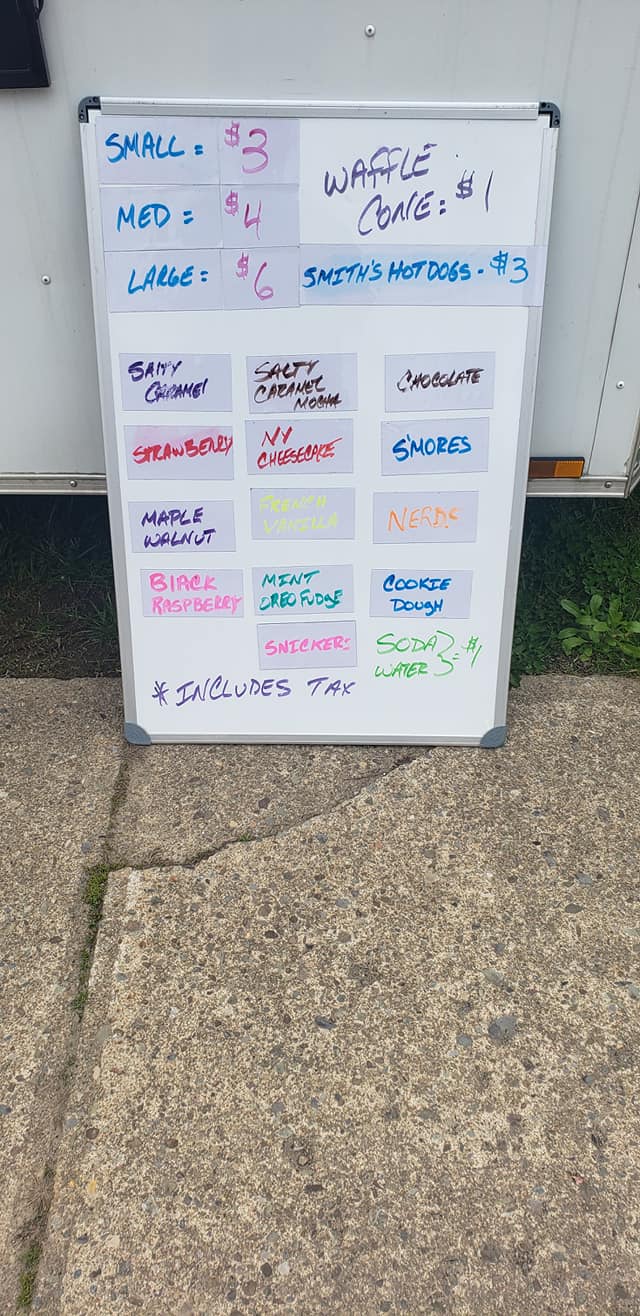 SMALL = $3
WAFFLE
CONE: $1
MED = $4
LARGE = $6
SMITH'S HOT DOGS - $3
SALTY
CARAMEL
SALTY
CARAMEL
MOCHA
CHOCOLATE
STRAWBERRY
NY
CHEESECAKE
S'MORES
MAPLE
WALNUT
FRENCH
VANILLA
NERDS
BLACK
RASPBERRY
MINT
OREO FUDGE
COOKIE
DOUGH
SNICKERS
SODA
WATER } = $1
* INCLUDES TAX